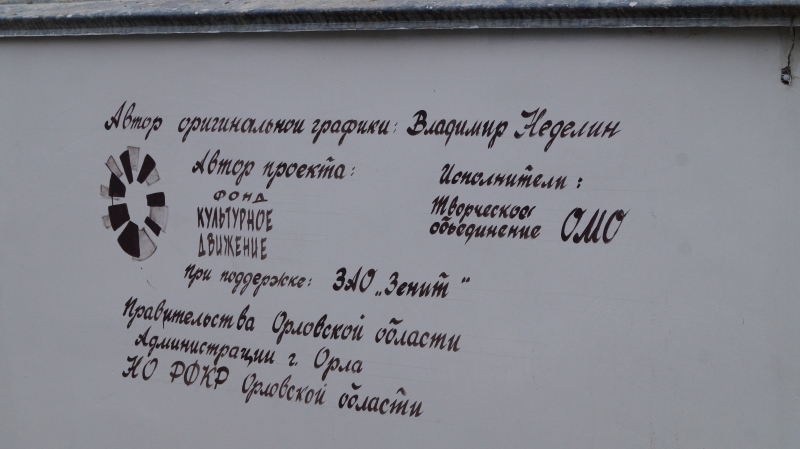 Автор оригинальной графики: Владимир Неделин
Автор проекта:
ФОНД
КУЛЬТУРНОЕ
ДВИЖЕНИЕ
Исполнители:
Творческое
объединение ОМО
При поддержке: ЗАО „Зенит“
Правительства Орловской области
Администрации г. Орла
НО РФКР Орловской области